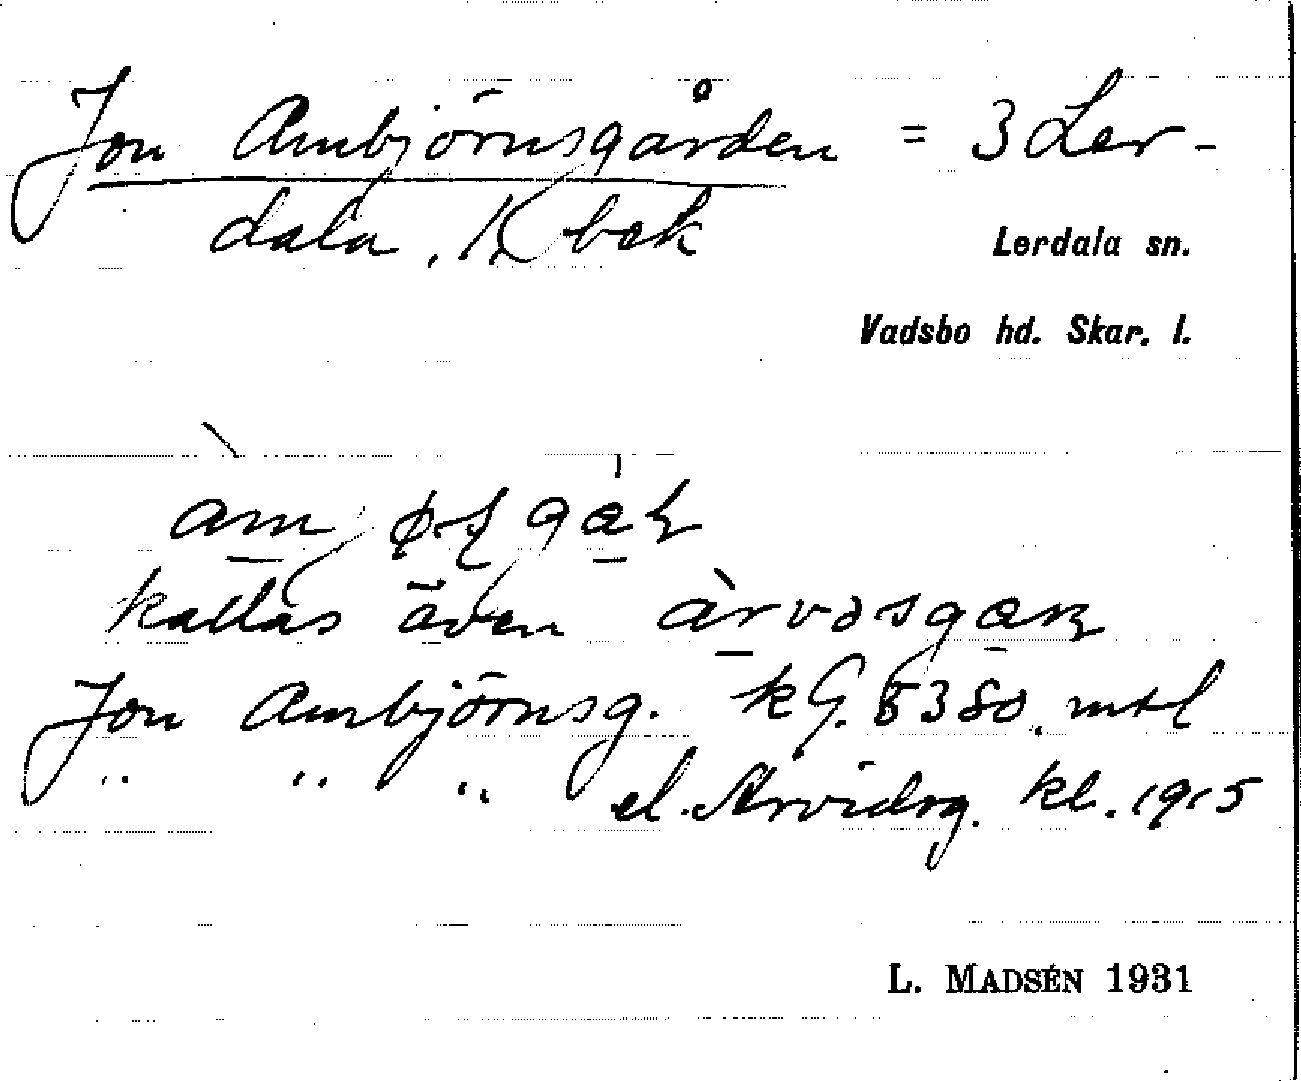 Jon Ambjörnsgården = 3 Ler-
dala, K bok
Lerdala sn.
Vadsbo hd. Skar. l.
kallas även
Jon Ambjörnsg. kG. 5380. mtl
" " " el. Arvidsg. kl. 1915
L. MADSÉN 1931